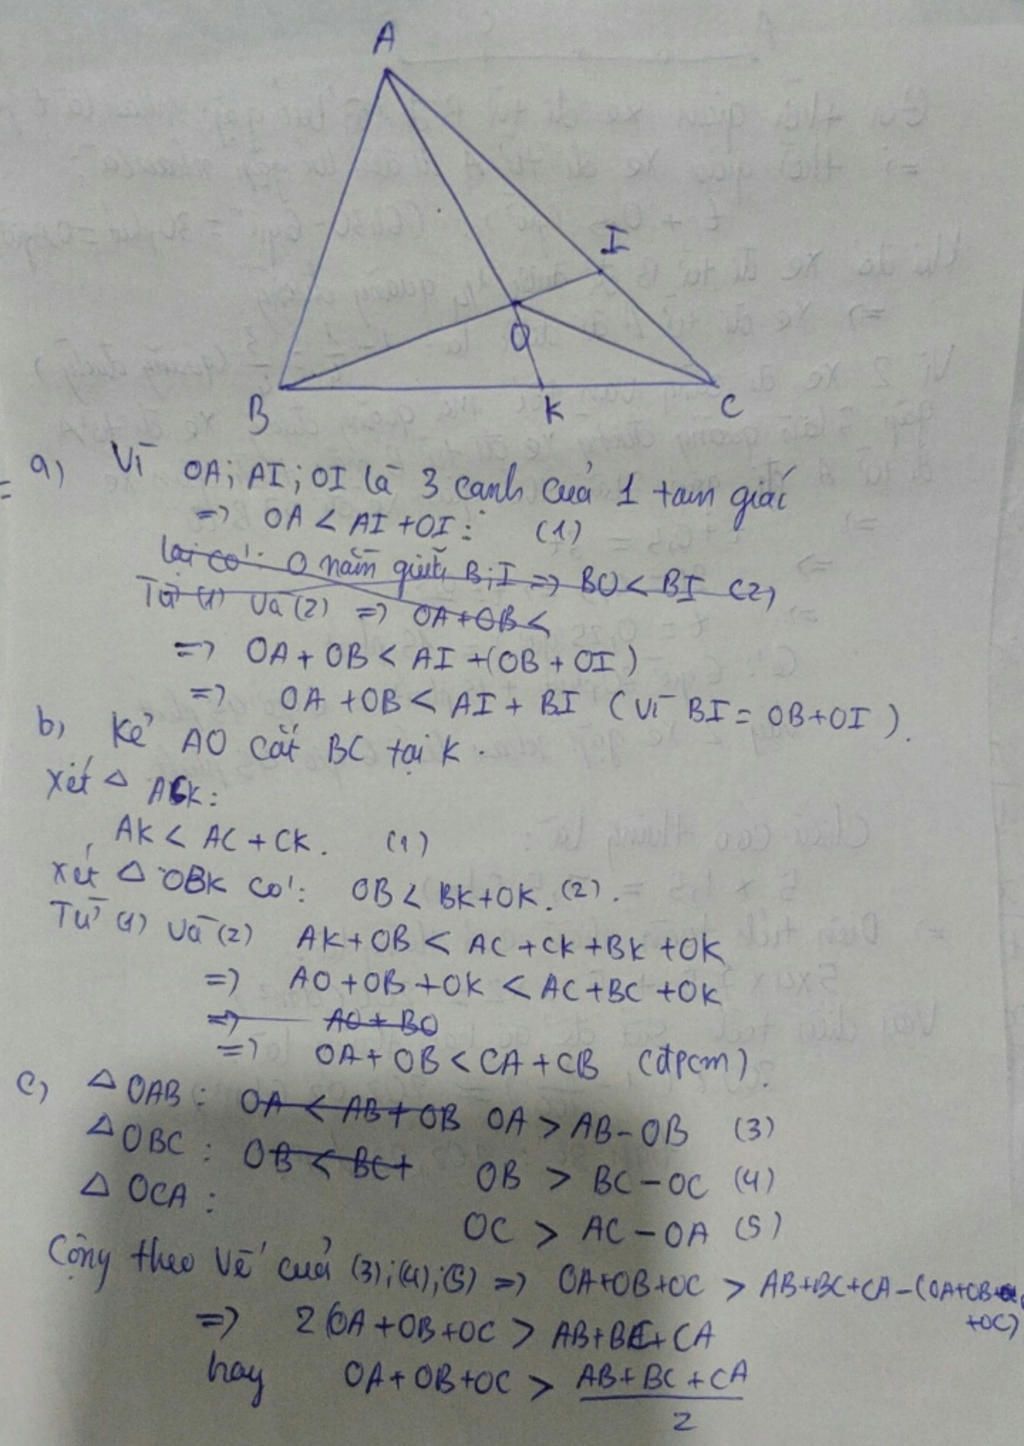 A
I
O
B
K
C
a) Vì OA; AI; OI là 3 cạnh của 1 tam giác
=> OA < AI + OI: (1)
lại có: O nằm giữa B; I => BO < BI (2)
Từ (1) và (2) => OA + OB <
=> OA + OB < AI + (OB + OI)
=> OA + OB < AI + BI (vì BI = OB + OI).
b) Kẻ AO cắt BC tại K.
Xét △ ACK:
AK < AC + CK. (1)
Xét △ OBK có: OB < BK + OK. (2).
Từ (1) và (2) AK + OB < AC + CK + BK + OK
=> AO + OB + OK < AC + BC + OK
=> AO + BO
=> OA + OB < CA + CB (đpcm).
c) △ OAB: OA < AB + OB OA > AB - OB (3)
△ OBC: OB < BC + OB > BC - OC (4)
△ OCA: OC > AC - OA (5)
Cộng theo vế của (3); (4); (5) => OA + OB + OC > AB + BC + CA - (OA + OB
+ OC)
=> 2(OA + OB + OC > AB + BC + CA
hay OA + OB + OC > AB + BC + CA
2